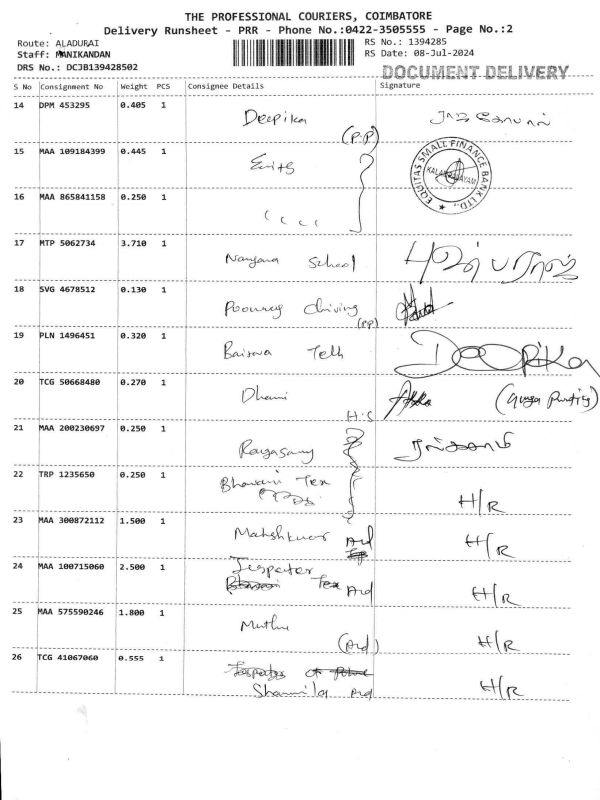 THE PROFESSIONAL COURIERS, COIMBATORE
Delivery Runsheet - PRR - Phone No.:0422-3505555 - Page No.:2
Route: ALADURAI
Staff: MANIKANDAN
DRS No.: DCJB139428502
RS No.: 1394285
RS Date: 08-Jul-2024
DOCUMENT DELIVERY
S No Consignment No Weight PCS Consignee Details Signature
14 DPM 453295 0.405 1 Deepika
(P.P)
15 MAA 109184399 0.445 1
EQUITAS SMALL FINANCE BANK LTD.,
16 MAA 865841158 0.250 1
17 MTP 5062734 3.710 1 School
18 SVG 4678512 0.130 1
(PP)
19 PLN 1496451 0.320 1 Deepika
20 TCG 50668480 0.270 1 Dhami
H.S
21 MAA 200230697 0.250 1
22 TRP 1235650 0.250 1 Bhavani Tex H/R
23 MAA 300872112 1.500 1 Ard H/R
24 MAA 100715060 2.500 1 Tex Ard H/R
25 MAA 575590246 1.800 1 Muthu H/R
(Ard)
26 TCG 41067060 0.555 1 Sharmila Ard H/R